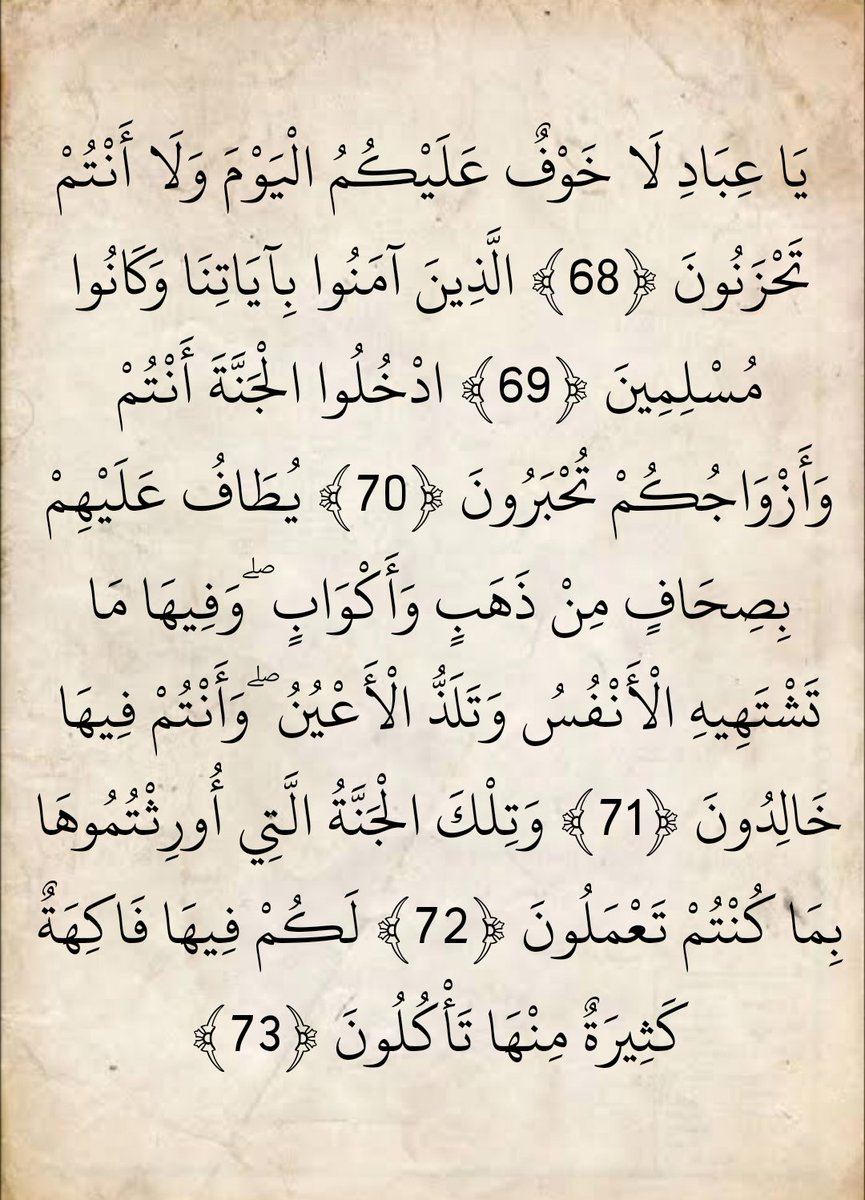 يَا عِبَادِ لَا خَوْفٌ عَلَيْكُمُ الْيَوْمَ وَلَا أَنْتُمْ
تَحْزَنُونَ ﴿68﴾ الَّذِينَ آمَنُوا بِآيَاتِنَا وَكَانُوا
مُسْلِمِينَ ﴿69﴾ ادْخُلُوا الْجَنَّةَ أَنْتُمْ
وَأَزْوَاجُكُمْ تُحْبَرُونَ ﴿70﴾ يُطَافُ عَلَيْهِمْ
بِصِحَافٍ مِنْ ذَهَبٍ وَأَكْوَابٍ ۖ وَفِيهَا مَا
تَشْتَهِيهِ الْأَنْفُسُ وَتَلَذُّ الْأَعْيُنُ ۖ وَأَنْتُمْ فِيهَا
خَالِدُونَ ﴿71﴾ وَتِلْكَ الْجَنَّةُ الَّتِي أُورِثْتُمُوهَا
بِمَا كُنْتُمْ تَعْمَلُونَ ﴿72﴾ لَكُمْ فِيهَا فَاكِهَةٌ
كَثِيرَةٌ مِنْهَا تَأْكُلُونَ ﴿73﴾